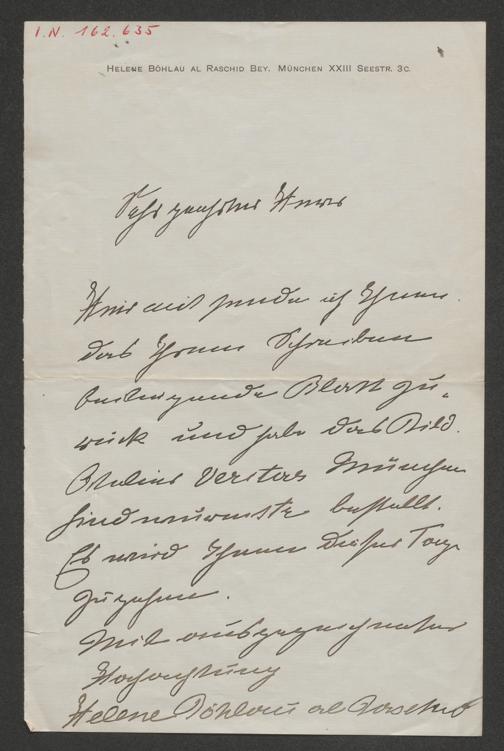 I.N. 162.635
HELENE BÖHLAU AL RASCHID BEY. MÜNCHEN XXIII SEESTR. 3C.
Sehr geehrter Herr
Hiermit sende ich Ihnen
das Ihrem Schreiben
beiliegende Blatt zu-
rück und habe das Bild.
Atelier Veritas München
bestellt.
Es wird Ihnen dieser Tage
zugehen.
Mit ausgezeichneter
Hochachtung
Helene Böhlau al Raschid